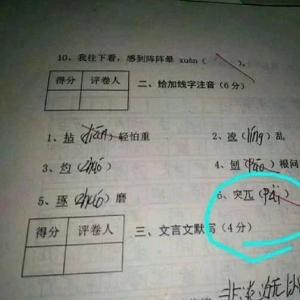 10、我往下看，感到阵阵晕 xuàn（ ）。
得分 评卷人
二、给加线字注音（6分）
1、拈（diān）轻怕重 2、凌（líng）乱
3、灼（zhuó） 4、刨（páo）根问
5、琢（zhuó）磨 6、突兀（
得分 评卷人
三、文言文默写（4分）